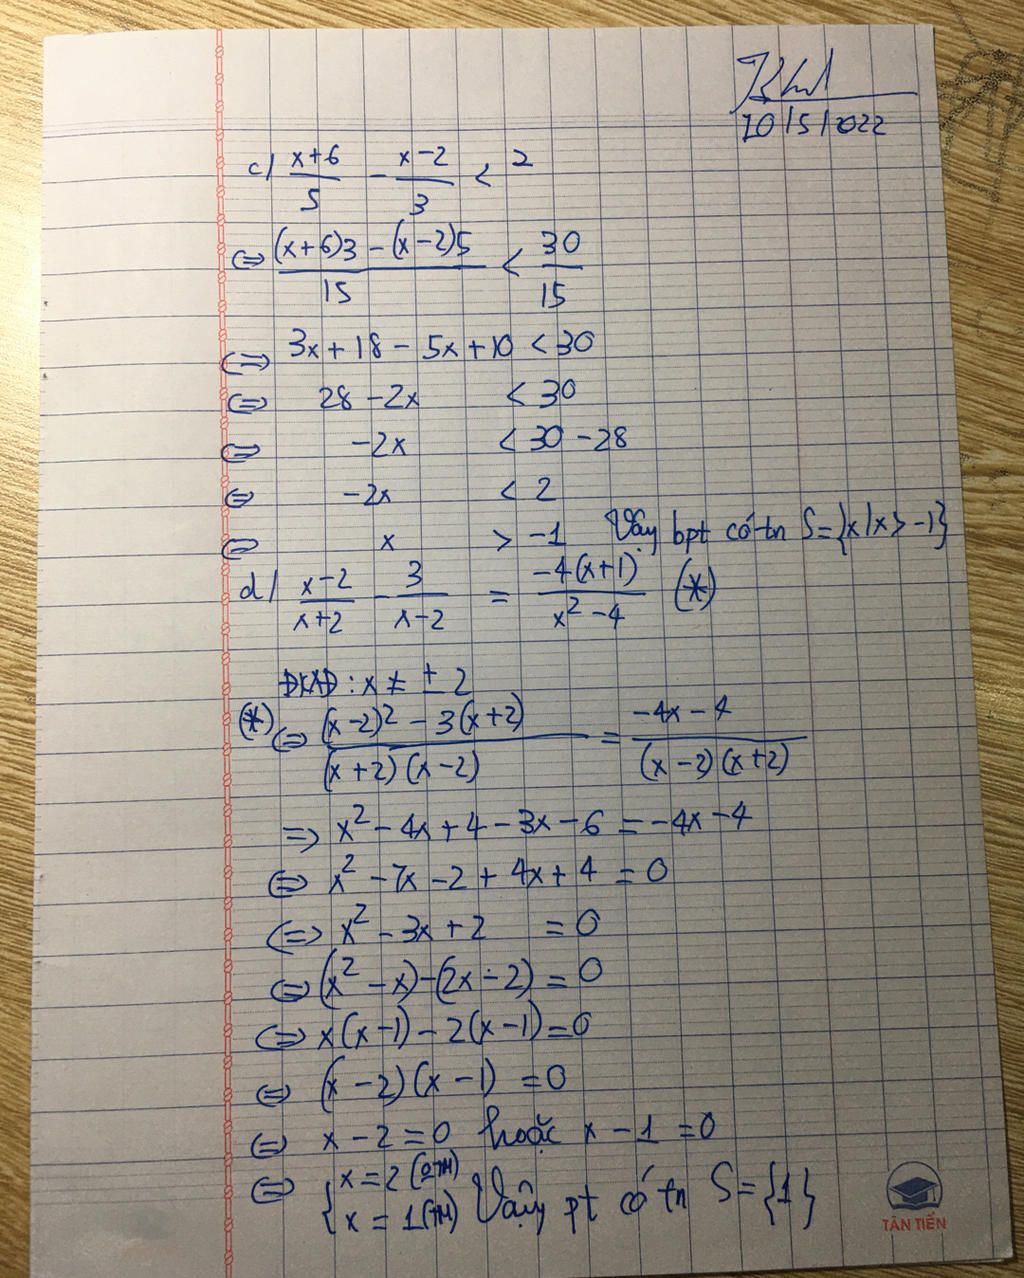 10/5/2022
c/ (x+6)/5 - (x-2)/3 < 2
⇔ ((x+6)3 - (x-2)5)/15 < 30/15
⇔ 3x + 18 - 5x + 10 < 30
⇔ 28 - 2x < 30
⇔ -2x < 30 - 28
⇔ -2x < 2
⇔ x > -1 Vậy bpt có tn S = {x | x > -1}
d/ (x-2)/(x+2) - 3/(x-2) = -4(x+1)/(x² - 4) (*)
ĐKXĐ : x ≠ ± 2
(*) ⇔ ((x-2)² - 3(x+2))/((x+2)(x-2)) = (-4x - 4)/((x-2)(x+2))
⇒ x² - 4x + 4 - 3x - 6 = -4x - 4
⇔ x² - 7x - 2 + 4x + 4 = 0
⇔ x² - 3x + 2 = 0
⇔ (x² - x) - (2x - 2) = 0
⇔ x(x-1) - 2(x-1) = 0
⇔ (x - 2)(x - 1) = 0
⇔ x - 2 = 0 hoặc x - 1 = 0
⇔ { x = 2 (0TM)
x = 1 (TM) Vậy pt có tn S = {1}
TÂN TIẾN